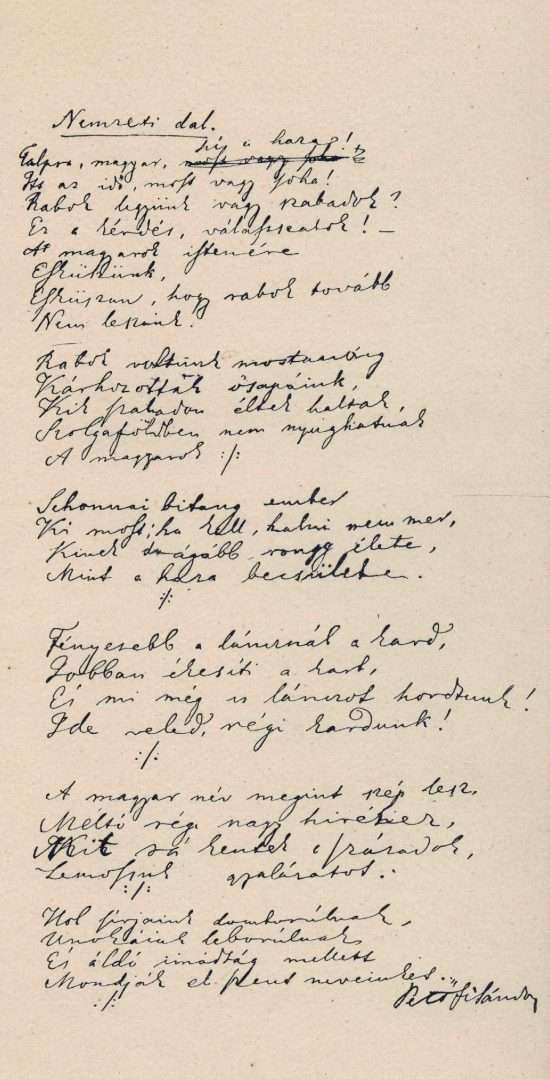 Nemzeti dal.
hív a haza!
Talpra, magyar, most vagy soha
Itt az idő, most vagy soha!
Rabok legyünk vagy szabadok?
Ez a kérdés, válasszatok! –
A magyarok istenére
Esküszünk,
Esküszünk, hogy rabok tovább
Nem leszünk.
Rabok voltunk mostanáig
Kárhozottak ősapáink,
Kik szabadon éltek haltak,
Szolgaföldben nem nyughatnak
A magyarok :/:
Sehonnai bitang ember
Ki most, ha kell, halni nem mer,
Kinek drágább rongy élete,
Mint a haza becsülete.
:/:
Fényesebb a láncznál a kard,
Jobban ékesíti a kart,
És mi még is lánczot hordtunk!
Ide veled, régi kardunk!
:/:
A magyar név megint szép lesz,
Méltó régi nagy hiréhez,
Mit rá kentek a századok,
Lemossuk gyalázatot.
:/:
Hol sírjaink domborúlnak,
Unokáink leborúlnak
És áldó imádság mellett
Mondják el szent neveinket.
:/:
Petőfi Sándor